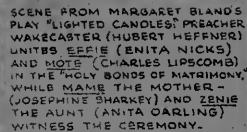 SCENE FROM MARGARET BLAND'S
PLAY "LIGHTED CANDLES." PREACHER
WAKECASTER (HUBERT HEFFNER)
UNITES EFFIE (ENITA NICKS)
AND MOTE (CHARLES LIPSCOMB)
IN THE "HOLY BONDS OF MATRIMONY,"
WHILE MAME THE MOTHER -
(JOSEPHINE SHARKEY) AND ZENIE
THE AUNT (ANITA DARLING)
WITNESS THE CEREMONY.